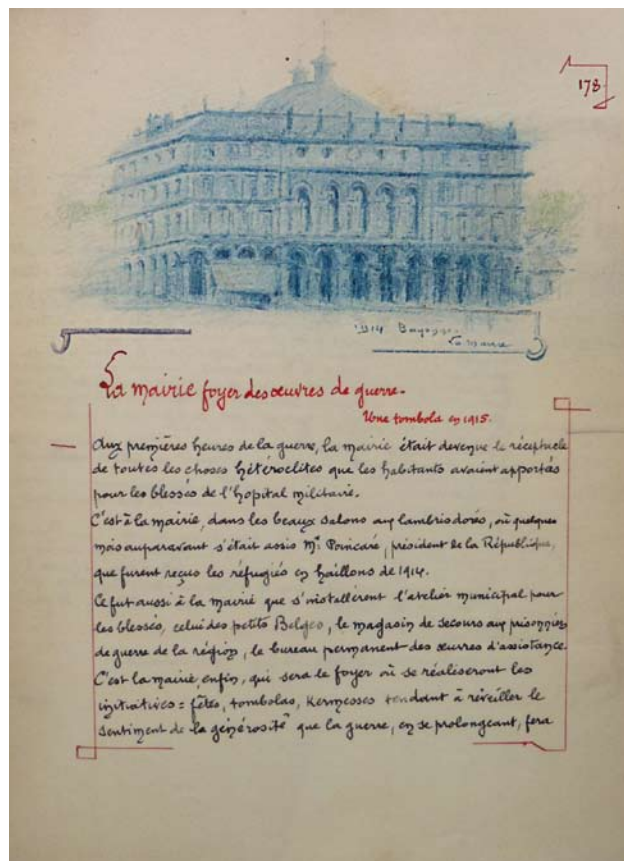 178.
1914 Bayonne.
La mairie
La mairie foyer des œuvres de guerre.
Une tombola en 1915.
Aux premières heures de la guerre, la mairie était devenue le réceptacle
de toutes les choses hétéroclites que les habitants avaient apportés
pour les blessés de l'hopital militaire.
C'est à la mairie, dans les beaux salons aux lambris dorés, où quelques
mois auparavant s'était assis Mr. Poincaré, président de la République,
que furent reçus les réfugiés en haillons de 1914.
Ce fut aussi à la mairie que s'installèrent l'atelier municipal pour
les blessés, celui des petits Belges, le magasin de secours aux prisonniers
de guerre de la région, le bureau permanent des œuvres d'assistance.
C'est la mairie enfin, qui sera le foyer où se réaliseront les
initiatives = fêtes, tombolas, Kermesses tendant à réveiller le
sentiment de la générosité que la guerre, en se prolongeant, fera